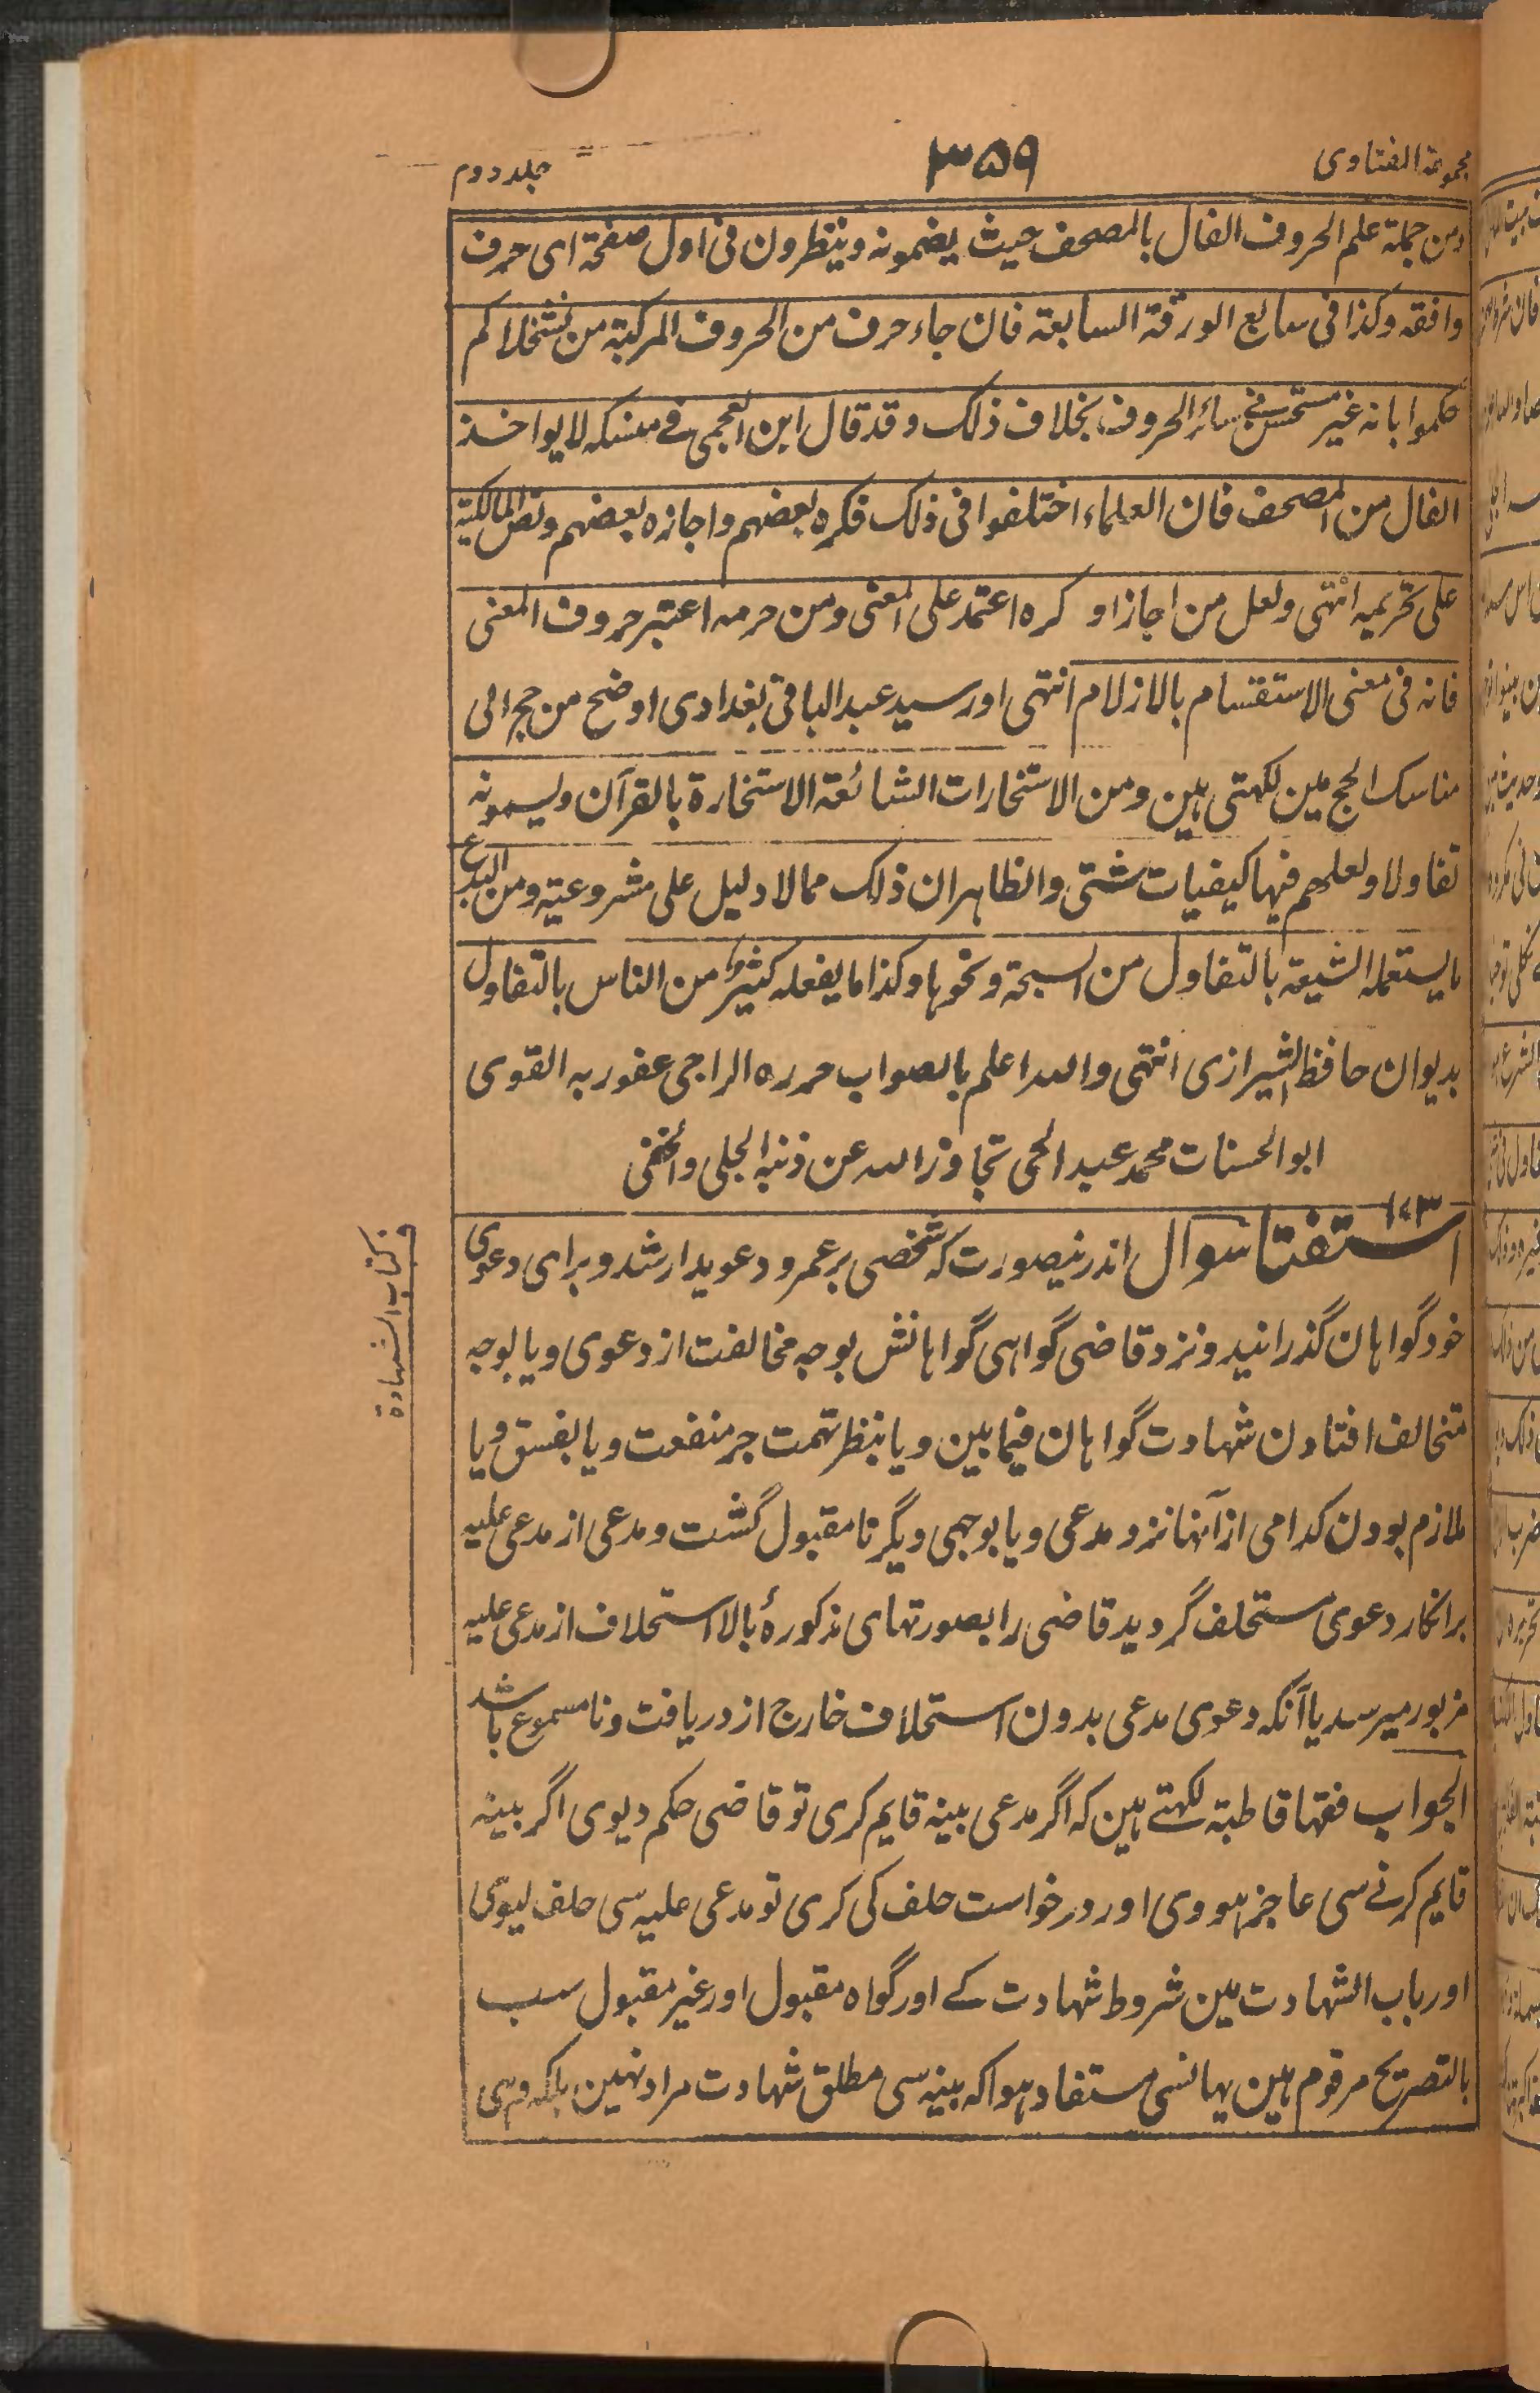 مجموعة الفتاوى
۳۵۹
جلد دوم
ومن جملة علم الحروف الفال بالمصحف حيث يضمونه وينظرون فى اول صفحة اى حرف
وافقه وكذا فى سابع الورقة السابعة فان جاء حرف من الحروف المركبة من تشخلاكم
حكموا بانه غير مستحسن وفى سائر الحروف بخلاف ذلك وقد قال ابن العجمى فى منسكه لا يواخذ
الفال من المصحف فان العلماء اختلفوا فى ذلك فكره بعضهم واجازه بعضهم ونص المالكية
على تحريمه انتهى ولعل من اجاز او كره اعتمد على المعنى ومن حرمه اعتبر حروف المعنى
فانه فى معنى الاستقسام بالازلام انتهى اور سيد عبد الباقى بغدادى اوضح من حج الى
مناسك الحج مين لكهتى هين ومن الاستخارات الشائعة الاستخارة بالقرآن ويسمونه
تفاولا ولعلهم فيها كيفيات شتى والظاهر ان ذلك مما لا دليل على مشروعيته ومن البدع
ما يستعمله الشيعة بالتفاول من السبحة ونحوها وكذا ما يفعله كثيرون من الناس بالتفاول
بديوان حافظ الشيرازى انتهى والله اعلم بالصواب حرره الراجى عفو ربه القوى
ابو الحسنات محمد عبد الحى تجاوز الله عن ذنبه الجلى والخفى
۱۷۳
استفتا سوال اندرينصورت كه شخصى بر عمرو دعويدار شد و براى دعوى
خود گواهان گذرانيد و نزد قاضى گواهى گواهانش بوجه مخالفت از دعوى و يا بوجه
متخالف افتادن شهادت گواهان فيما بين و يا بنظر تهمت جر منفعت و يا بفسق و يا
ملازم بودن كدامى از آنها نزد مدعى و يا بوجهى ديگر نامقبول گشت و مدعى از مدعى عليه
بر انكار دعوى مستحلف گرديد قاضى را بصورتهاى مذكورهٔ بالا استحلاف از مدعى عليه
مزبور ميرسد يا آنكه دعوى مدعى بدون استحلاف خارج از دريافت و نامسموع باشد
الجواب فقها قاطبة لكهتے هين كه اگر مدعى بينه قايم كرى تو قاضى حكم ديوى اگر بينه
قايم كرنے سى عاجز هووى اور درخواست حلف كى كرى تو مدعى عليه سى حلف ليوى
اور باب الشهادت مين شروط شهادت كے اور گواه مقبول اور غير مقبول سب
بالتصريح مرقوم هين يهانسى مستفاد هوا كه بينه سى مطلق شهادت مراد نهين بلكه وهى
كتاب الشهادة